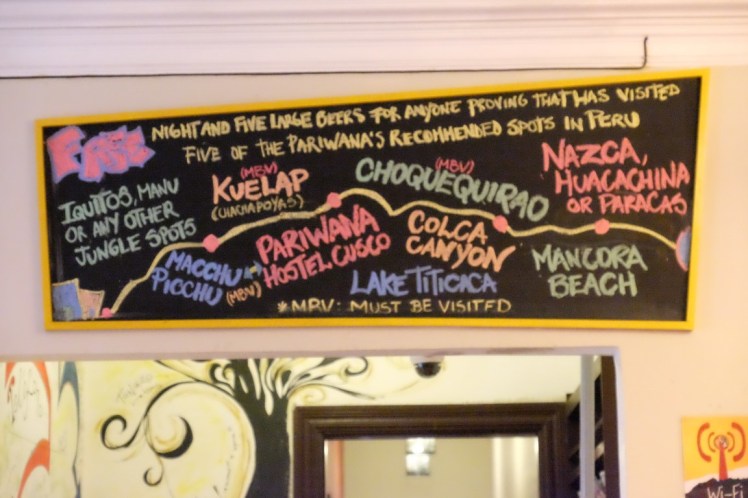 FREE NIGHT AND FIVE LARGE BEERS FOR ANYONE PROVING THAT HAS VISITED
FIVE OF THE PARIWANA'S RECOMMENDED SPOTS IN PERU
IQUITOS, MANU
OR ANY OTHER
JUNGLE SPOTS
(MBV)
KUELAP
(CHACHAPOYAS)
(MBV)
CHOQUEQUIRAO
NAZCA,
HUACACHINA
OR PARACAS
MACCHU
PICCHU (MBV)
PARIWANA
HOSTEL CUSCO
COLCA
CANYON
LAKE TITICACA
MANCORA
BEACH
*MBV: MUST BE VISITED
Wi-Fi